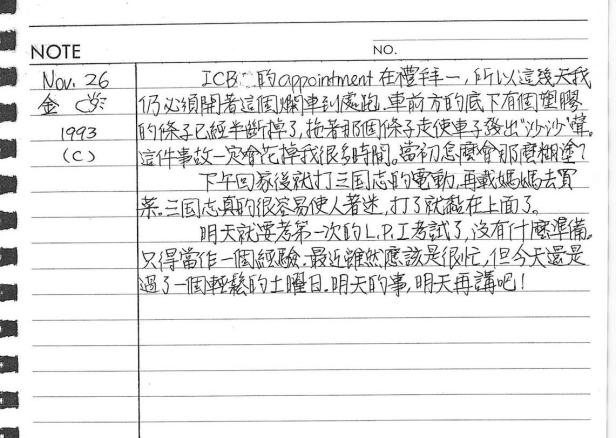 NOTE
NO.
Nov. 26
金
1993
(C)
ICBC的appointment在禮拜一,所以這幾天我
仍必須開著這個爛車到處跑.車前方的底下有個塑膠
的條子已經半斷掉了,拖著那個條子走使車子發出"沙沙"聲。
這件事故一定會花掉我很多時間。當初怎麼會那麼糊塗?
下午回家後就打三国志的電動,再載媽媽去買
菜.三国志真的很容易使人著迷,打了就黏在上面了。
明天就要考第一次的L.P.I考試了,沒有什麼準備。
只得當作一個經驗.最近雖然應該是很忙,但今天還是
過了一個輕鬆的土曜日.明天的事,明天再講吧!